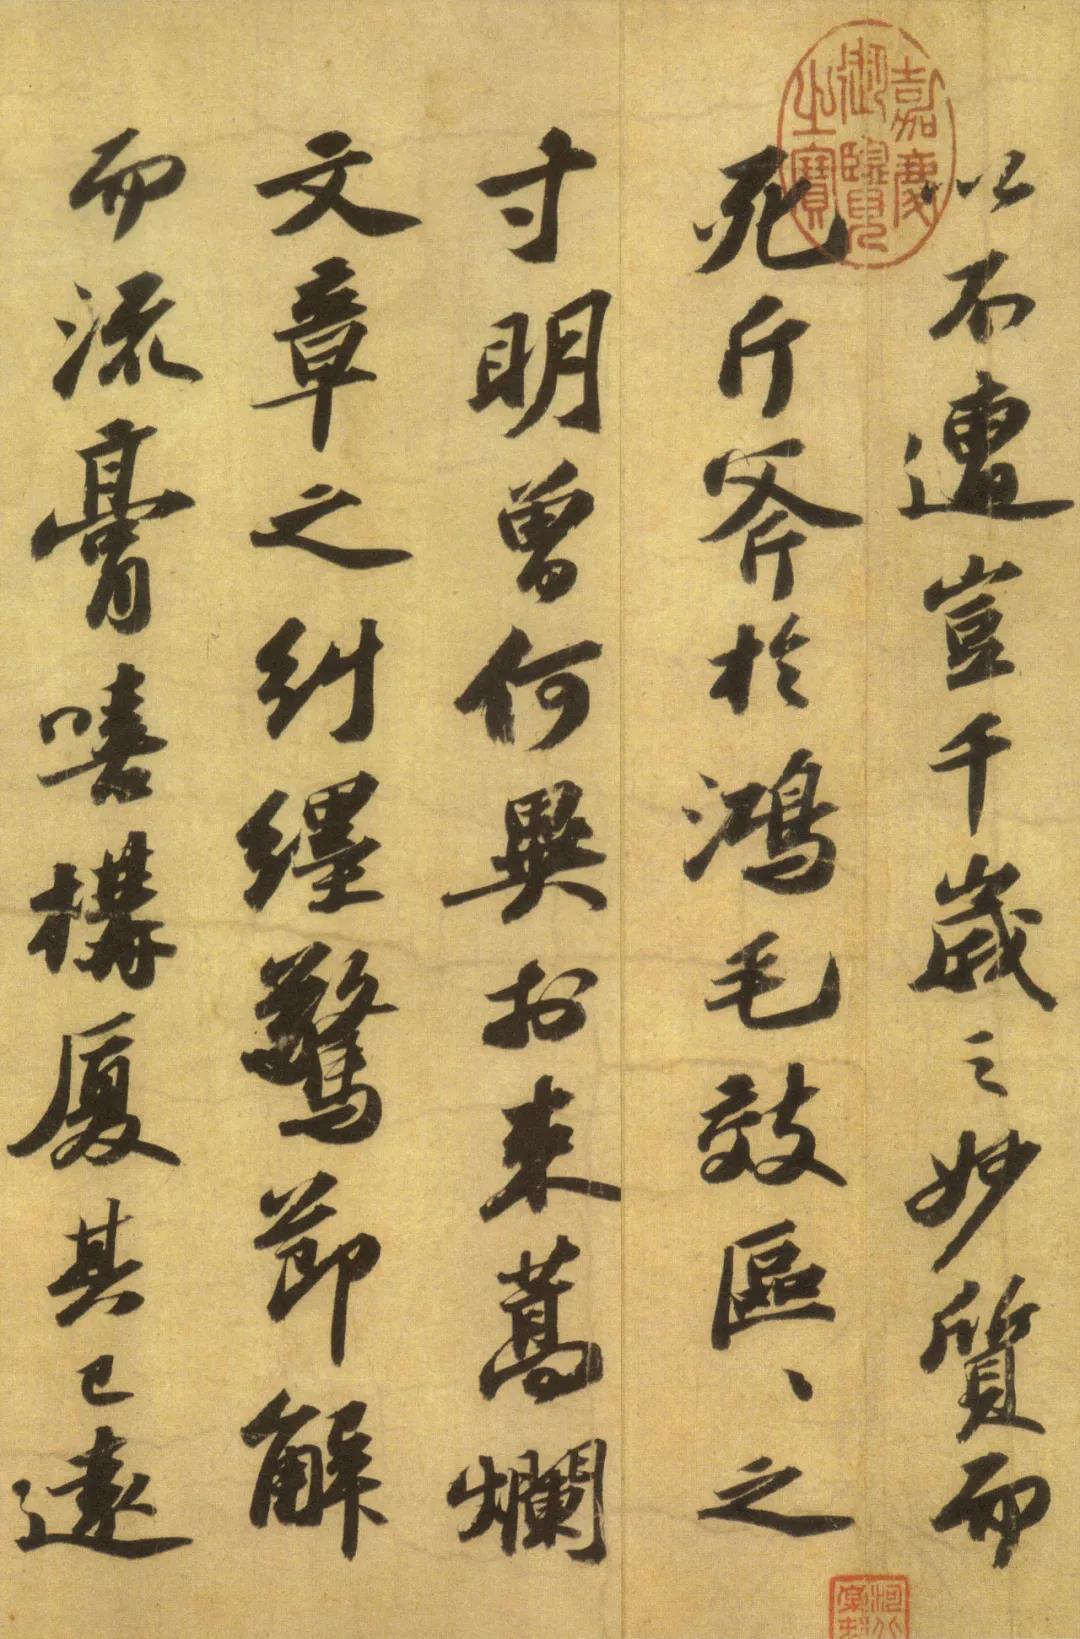 嘉慶御覽之寶
以不遭豈千歲之妙質而
死斤斧於鴻毛效區〻之
寸明曾何異於束蒿爛
文章之糾纆驚節解
而流膏嘻構厦其已遠